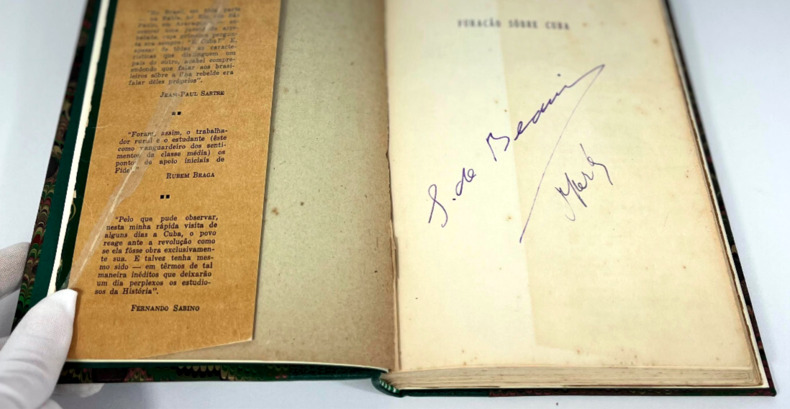 "No Brasil,
da sua sempre, "E CUBA? E,
apesar de tôdas as caracte-
rísticas que distinguem um
país de outro, acabei compre-
endendo que falar aos brasi-
leiros sôbre a ilha rebelde era
falar dêles próprios".
JEAN-PAUL SARTRE
"Foram, assim, o trabalha-
dor rural e o estudante (êste
como vanguardeiro dos senti-
mentos da classe média) os
pontos de apoio iniciais de
Fidel
RUBEM BRAGA
"Pelo que pude observar,
nesta minha rápida visita de
alguns dias a Cuba, o povo
reage ante a revolução como
se ela fôsse obra exclusivamen-
te sua. E talvez tenha mes-
mo sido — em têrmos de tal
maneira inéditos que deixarão
um dia perplexos os estudio-
sos da História".
FERNANDO SABINO
FURACÃO SÔBRE CUBA
S. de Beauvoir